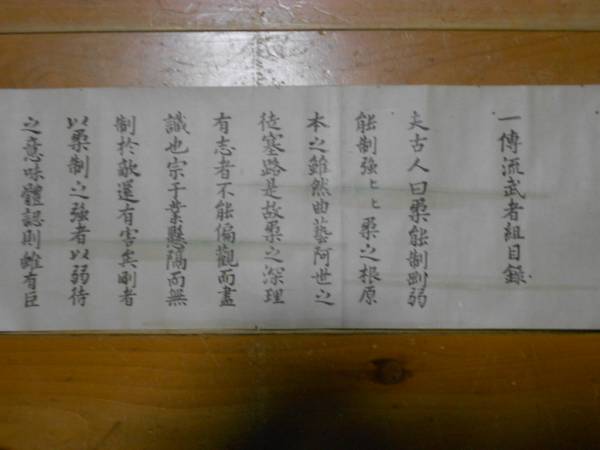 一傳流武者組目錄
夫古人曰柔能制剛弱
能制強ヒヒ柔之根原
本之雖然曲藝阿世之
徒塞路是故柔之深理
有志者不能偏觀而盡
識也宗于業懸隔而無
制於敵還有害矣剛者
以柔制之強者以弱待
之意味體認則雖有巨